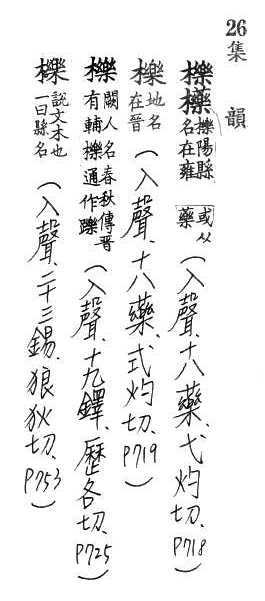 26
集韻
櫟𣛙櫟陽縣名在雍或从藥(入聲、十八藥、弋灼切、P718)
櫟地名在晉(入聲、十八藥、式灼切、P719)
櫟闕人名春秋傳晉有輔櫟通作躒(入聲、十九鐸、歷各切、P725)
櫟說文木也一曰縣名(入聲、二十三錫、狼狄切、P753)